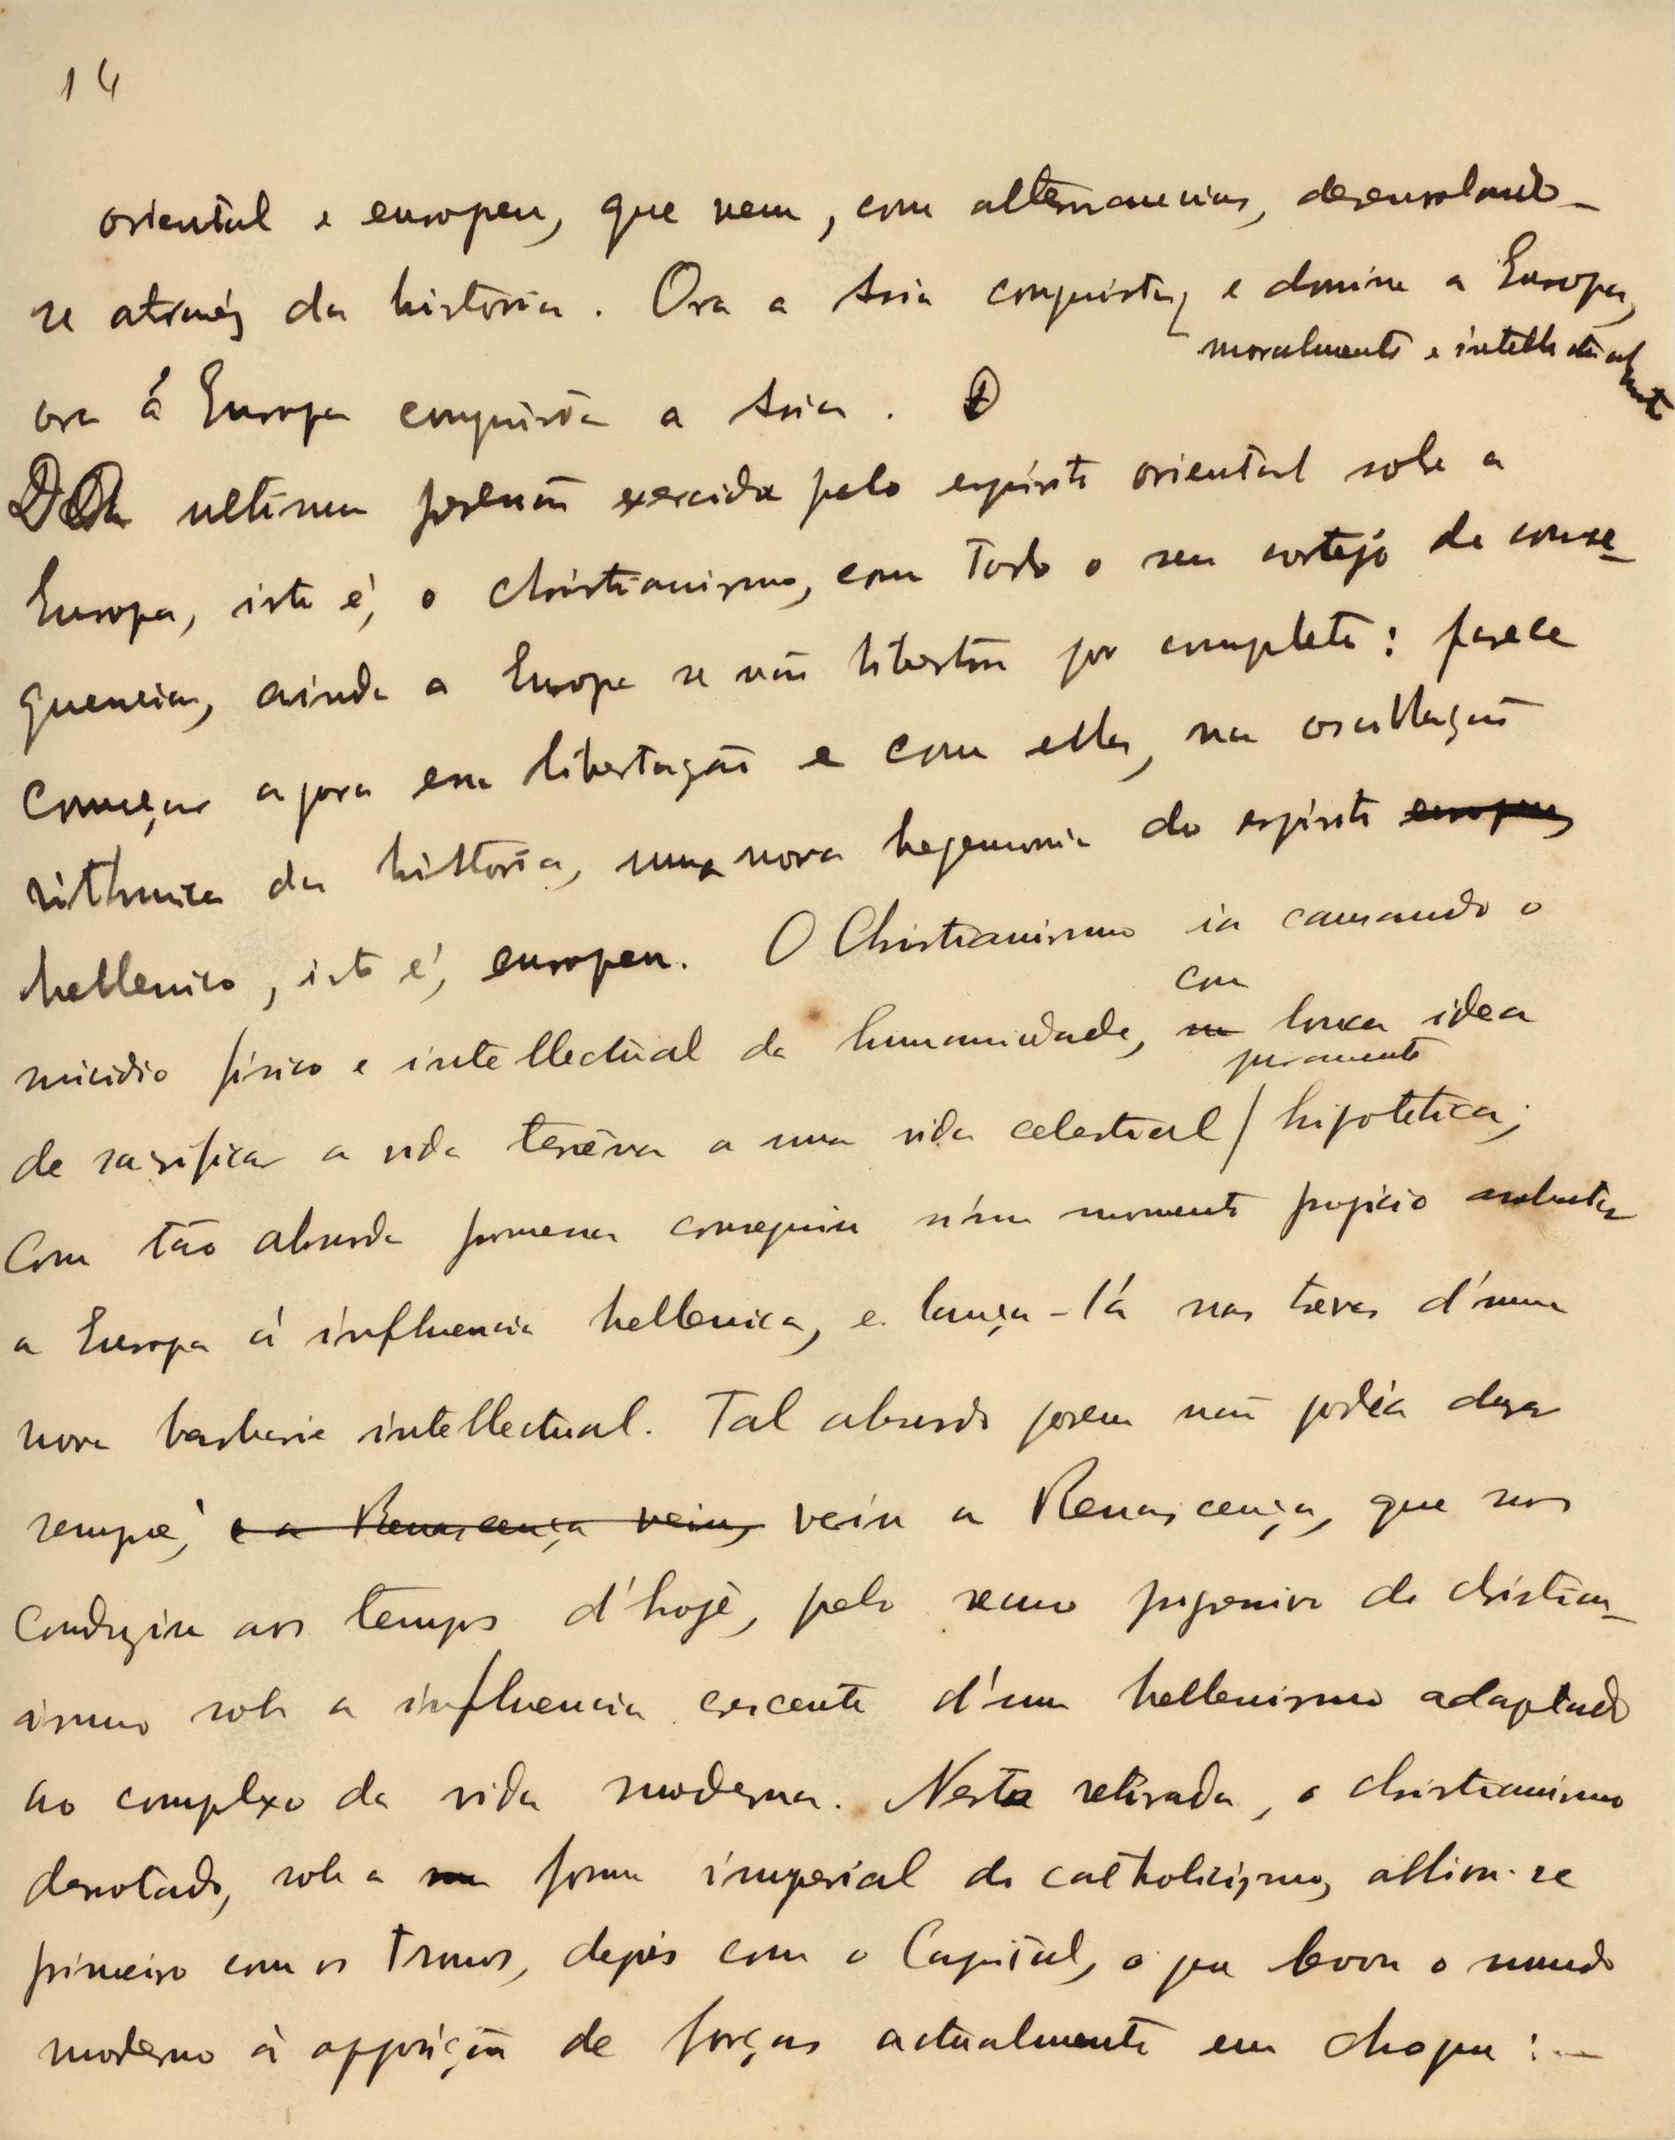 14
oriental e europeu, que vem, com alternancias, desenrolando-
se atravéz da historia. Ora a Asia conquista, e domina a Europa,
moralmente e intellectualmente
ora a Europa conquista a Asia.
Da ultima pressão exercida pelo espirito oriental sobre a
Europa, isto é, o christianismo, com todo o seu cortejo de conse-
quencias, ainda a Europa se não libertou por completo: parece
começar agora essa libertação e com ella, na oscillação
rithmica da historia, uma nova hegemonia do espirito europeu
hellenico, isto é, europeu. O Christianismo ia causando o
com
suicidio fisico e intellectual da humanidade, na louca idea
puramente
de sacrificar a vida terrêna a uma vida celestial / hipotetica;
Com tão absurda promessa conseguiu n'um momento propicio
a Europa á influencia hellenica, e lança-lá nas trevas d'uma
nova barbarie intellectual. Tal absurdo porem não podia durar
sempre; e a Renascença veiu, veiu a Renascença, que nos
conduziu aos tempos d'hoje, pelo recuo progressivo do christian-
ismo sob a influencia crescente d'um hellenismo adaptado
ao complexo da vida moderna. Nesta retirada, o christianismo
derrotado, sob a forma imperial do catholicismo, alliou-se
primeiro com os tronos, depois com o Capital, o que levou o mundo
moderno á opposição de forças actualmente em choque: —